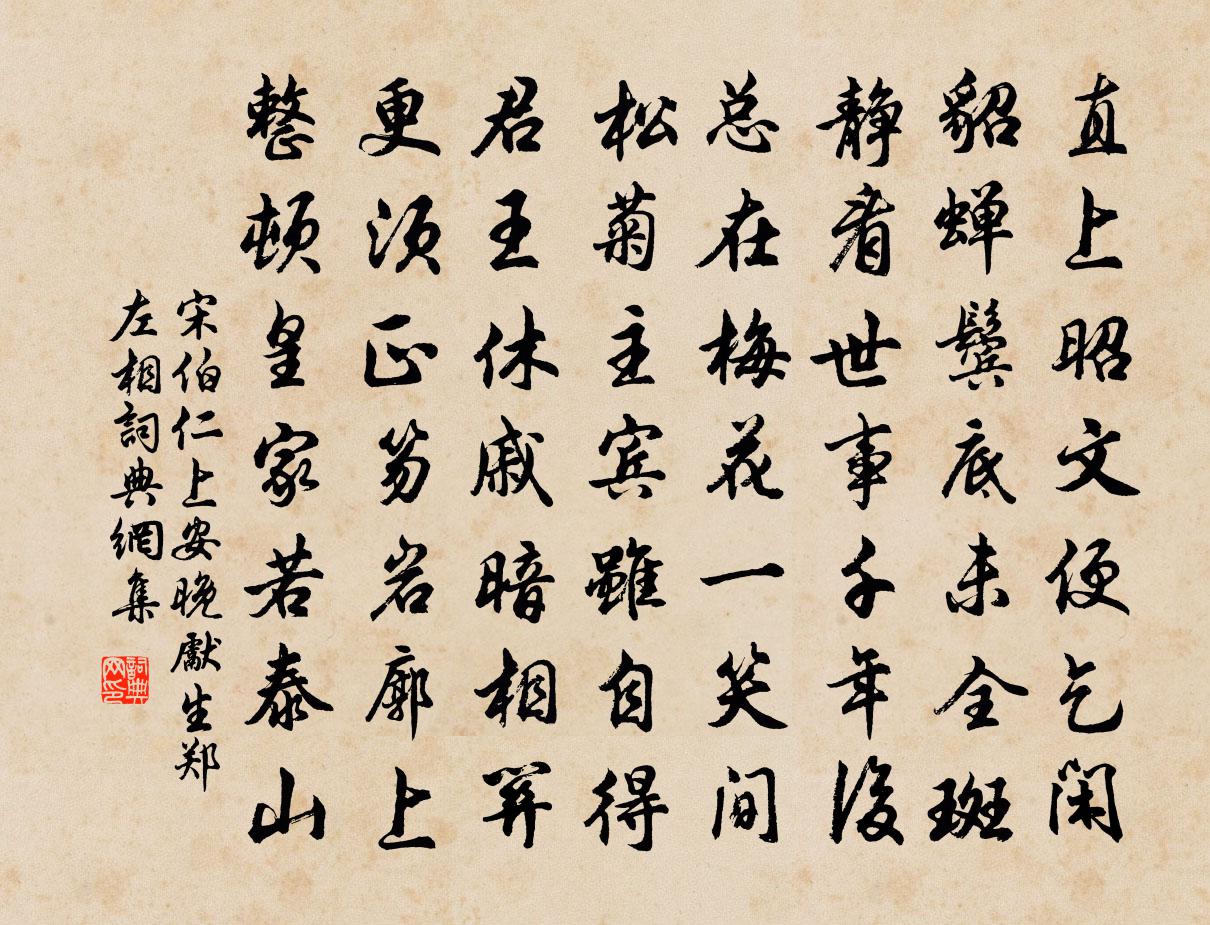 直上昭文便乞闲
貂蝉鬓底未全斑
静看世事千年後
总在梅花一笑间
松菊主宾雖自得
君王休戚暗相関
更须正笏岩廊上
整顿皇家若泰山
宋伯仁上安晚獻生郑
左相詞典網集
詞典
网印